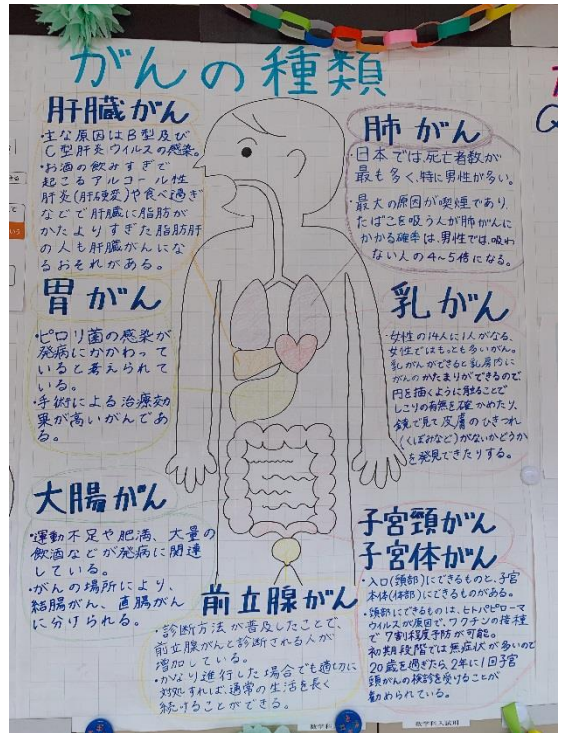 がんの種類
肝臓がん
・主な原因はB型及び
C型肝炎ウイルスの感染。
・お酒の飲みすぎで
起こるアルコール性
肝炎(肝硬変)や食べ過ぎ
などで肝臓に脂肪が
かたよりすぎた脂肪肝
の人も肝臓がんにな
るおそれがある。
胃がん
・ピロリ菌の感染が
発病にかかわって
いると考えられて
いる。
・手術による治療効
果が高いがんであ
る。
大腸がん
・運動不足や肥満、大量の
飲酒などが発病に関連
している。
・がんの場所により、
結腸がん、直腸がん
に分けられる。
前立腺がん
・診断方法が普及したことで、
前立腺がんと診断される人が
増加している。
・かなり進行した場合でも適切に
対処すれば、通常の生活を長く
続けることができる。
肺がん
・日本では、死亡者数が
最も多く、特に男性が多い。
・最大の原因が喫煙であり、
たばこを吸う人が肺がんに
かかる確率は、男性では、吸わ
ない人の4~5倍になる。
乳がん
・女性の14人に1人がなる、
女性ではもっとも多いがん。
乳がんができると乳房内に
がんのかたまりができるので、
円を描くように触ることで
しこりの有無を確かめたり、
鏡で見て皮膚のひきつれ
(くぼみなど)がないかどうか
を発見できたりする。
子宮頸がん
子宮体がん
・入口(頸部)にできるものと、子宮
本体(体部)にできるものがある。
・頸部にできるものは、ヒトパピローマ
ウイルスが原因で、ワクチンの接種
で7割程度予防が可能。
初期段階では無症状が多いので
20歳を過ぎたら、2年に1回子宮
頸がんの検診を受けることが
勧められている。